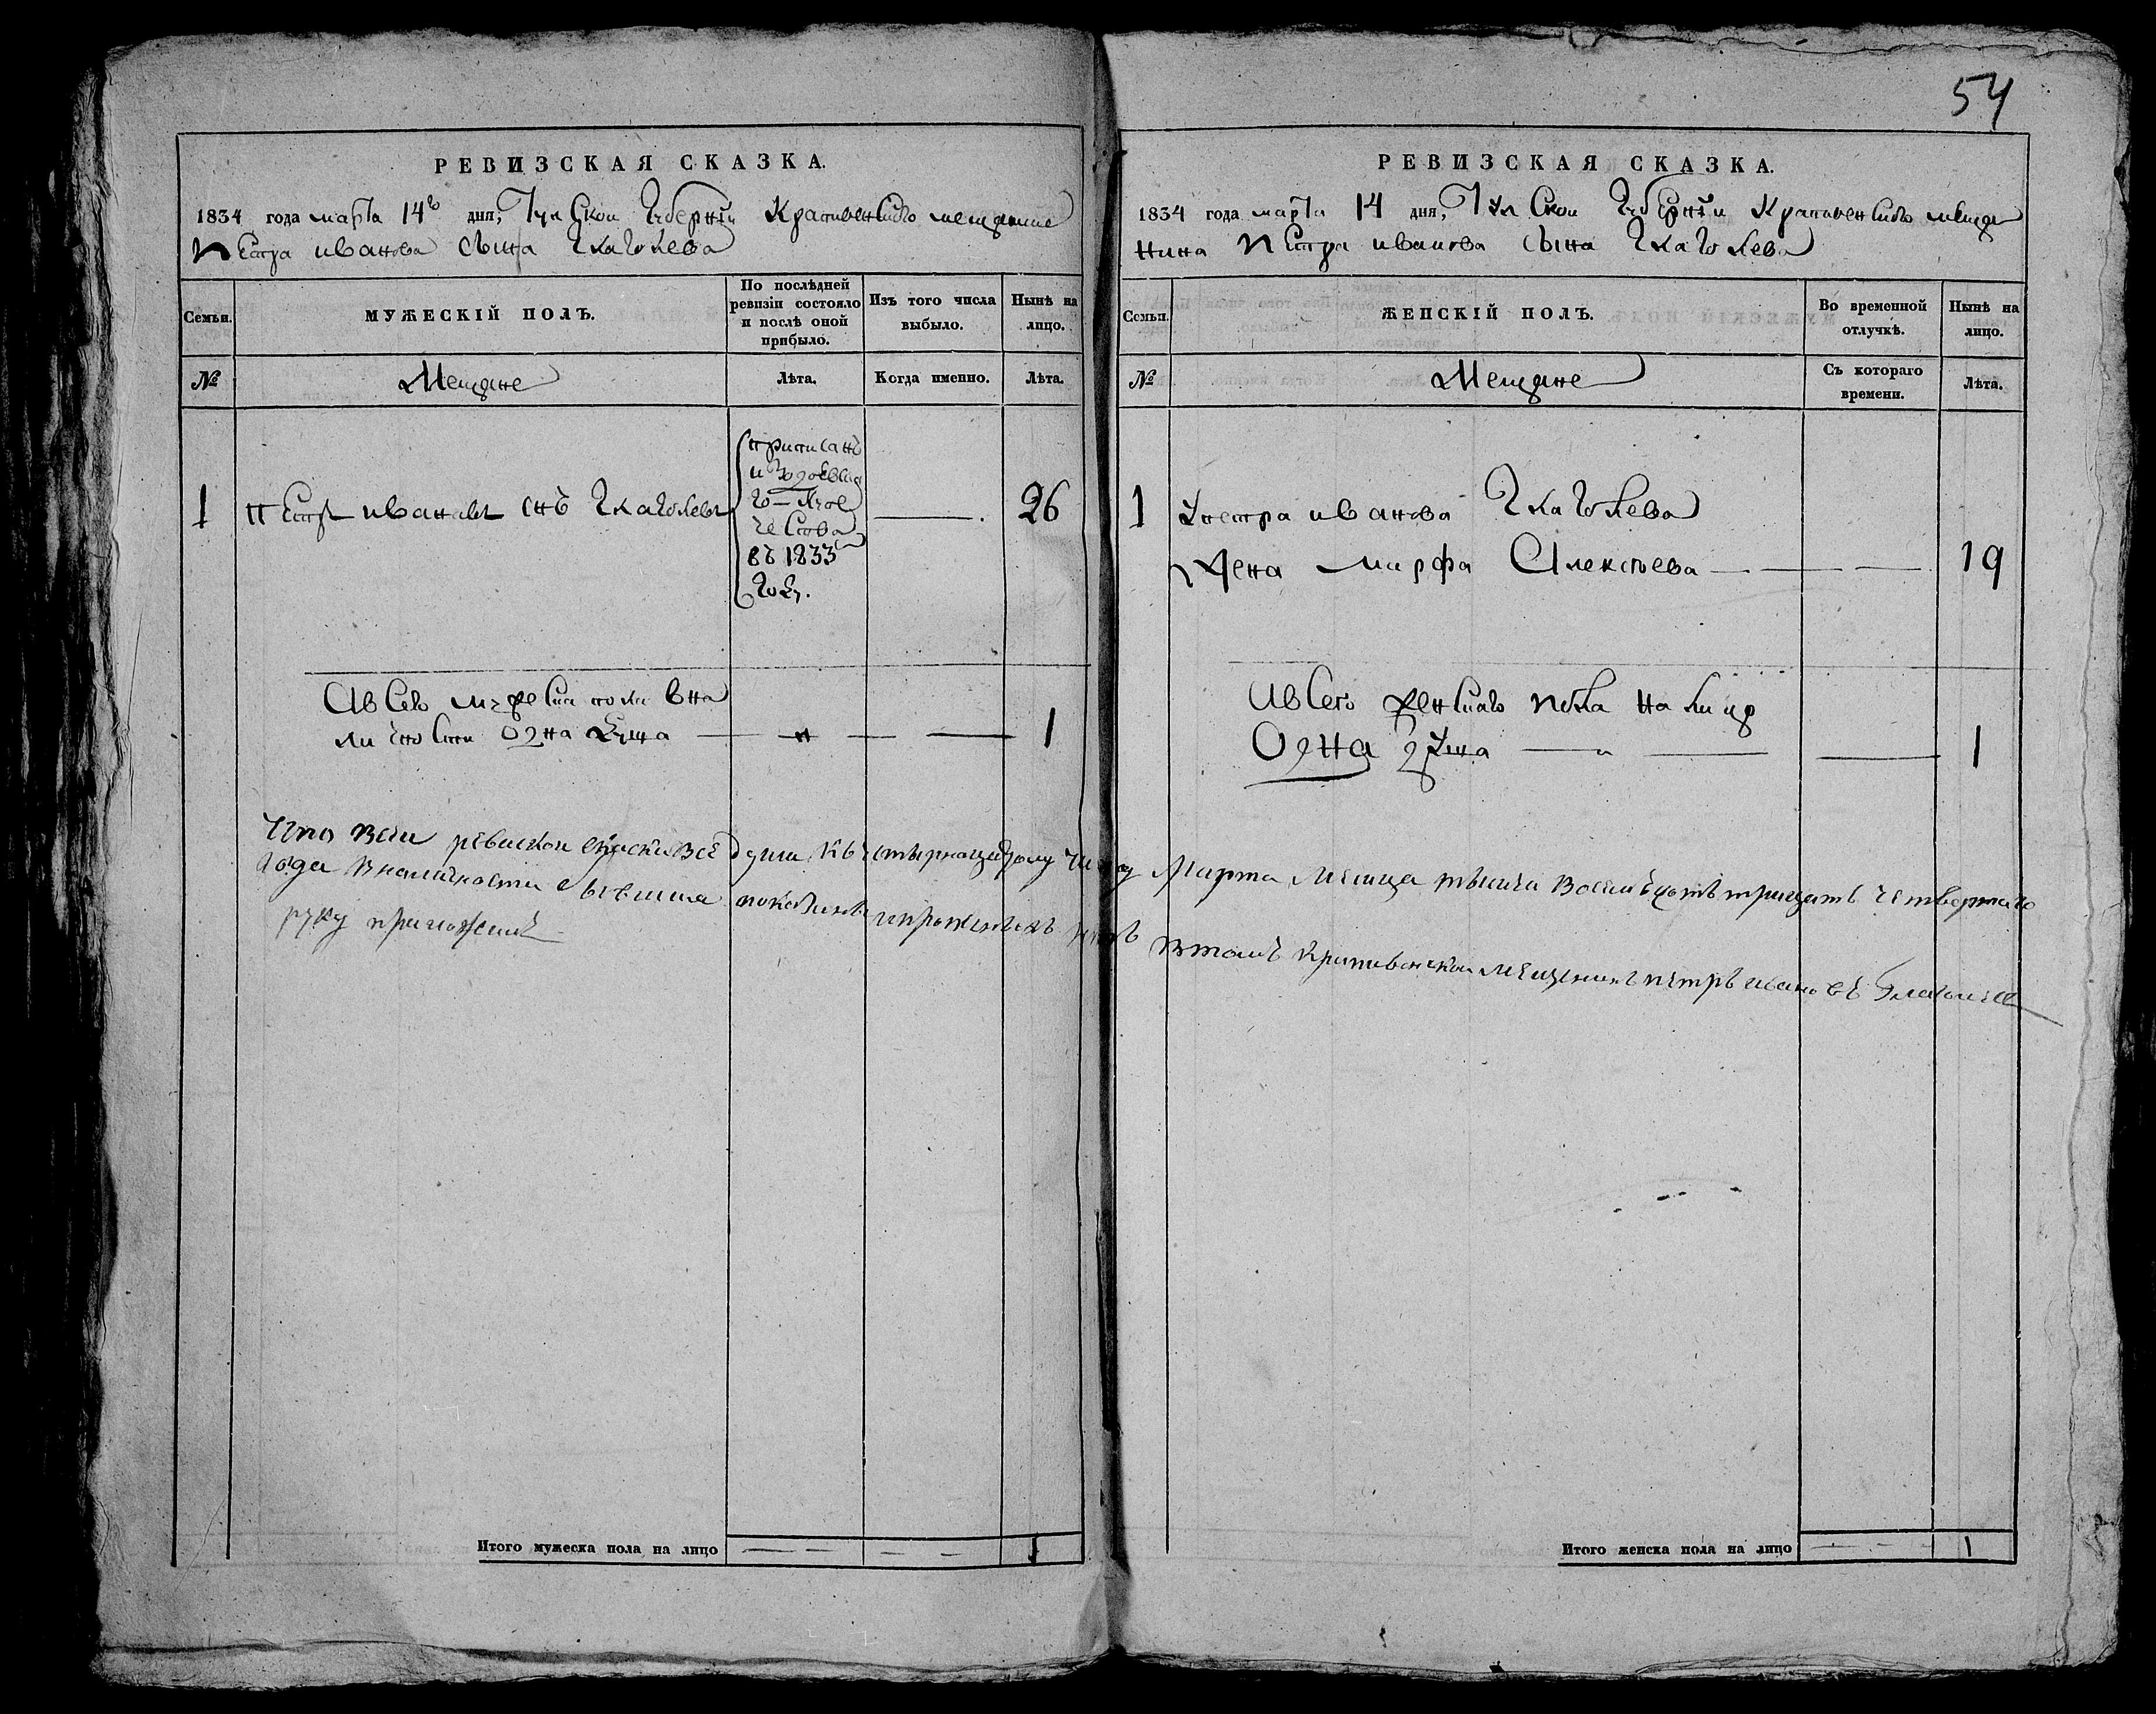 54
РЕВИЗСКАЯ СКАЗКА.
1834 года марта 14го дня, Тулской губернїи Крапивенскаго мещанина
Петра иванова сына Глаголева
Семьи.
МУЖЕСКІЙ ПОЛЪ.
По послѣдней ревизіи состояло и послѣ оной прибыло.
Изъ того числа выбыло.
Нынѣ на лицо.
№
Мещане
Лѣта.
Когда именно.
Лѣта.
1 Петръ ивановъ снъ Глаголевъ
приписанъ
из
в 1833
году.
26
И всего мужеска пола в на
личности одна душа — 1
Итого мужеска пола на лицо 1
РЕВИЗСКАЯ СКАЗКА.
1834 года марта 14 дня, Тулской губернїи Крапивенскаго меща
нина Петра иванова сына Глаголева
Семьи.
ЖЕНСКІЙ ПОЛЪ.
Во временной отлучкѣ.
Нынѣ на лицо.
№
Мещане
Съ котораго времени.
Лѣта.
1 У петра иванова Глаголева
жена марфа Алексѣева — 19
И всего женскаго пола на лицо
Одна душа — 1
Что в сеи ревиской скаски все души к четырнадцатому числу Марта месица тысича восемьсотъ тридцать четвертаго
года в наличности бывшиа показаны и прописных нетъ в томъ крапивенской мещенинъ петръ ивановъ Глаголев
руку приложилъ
Итого женска пола на лицо 1